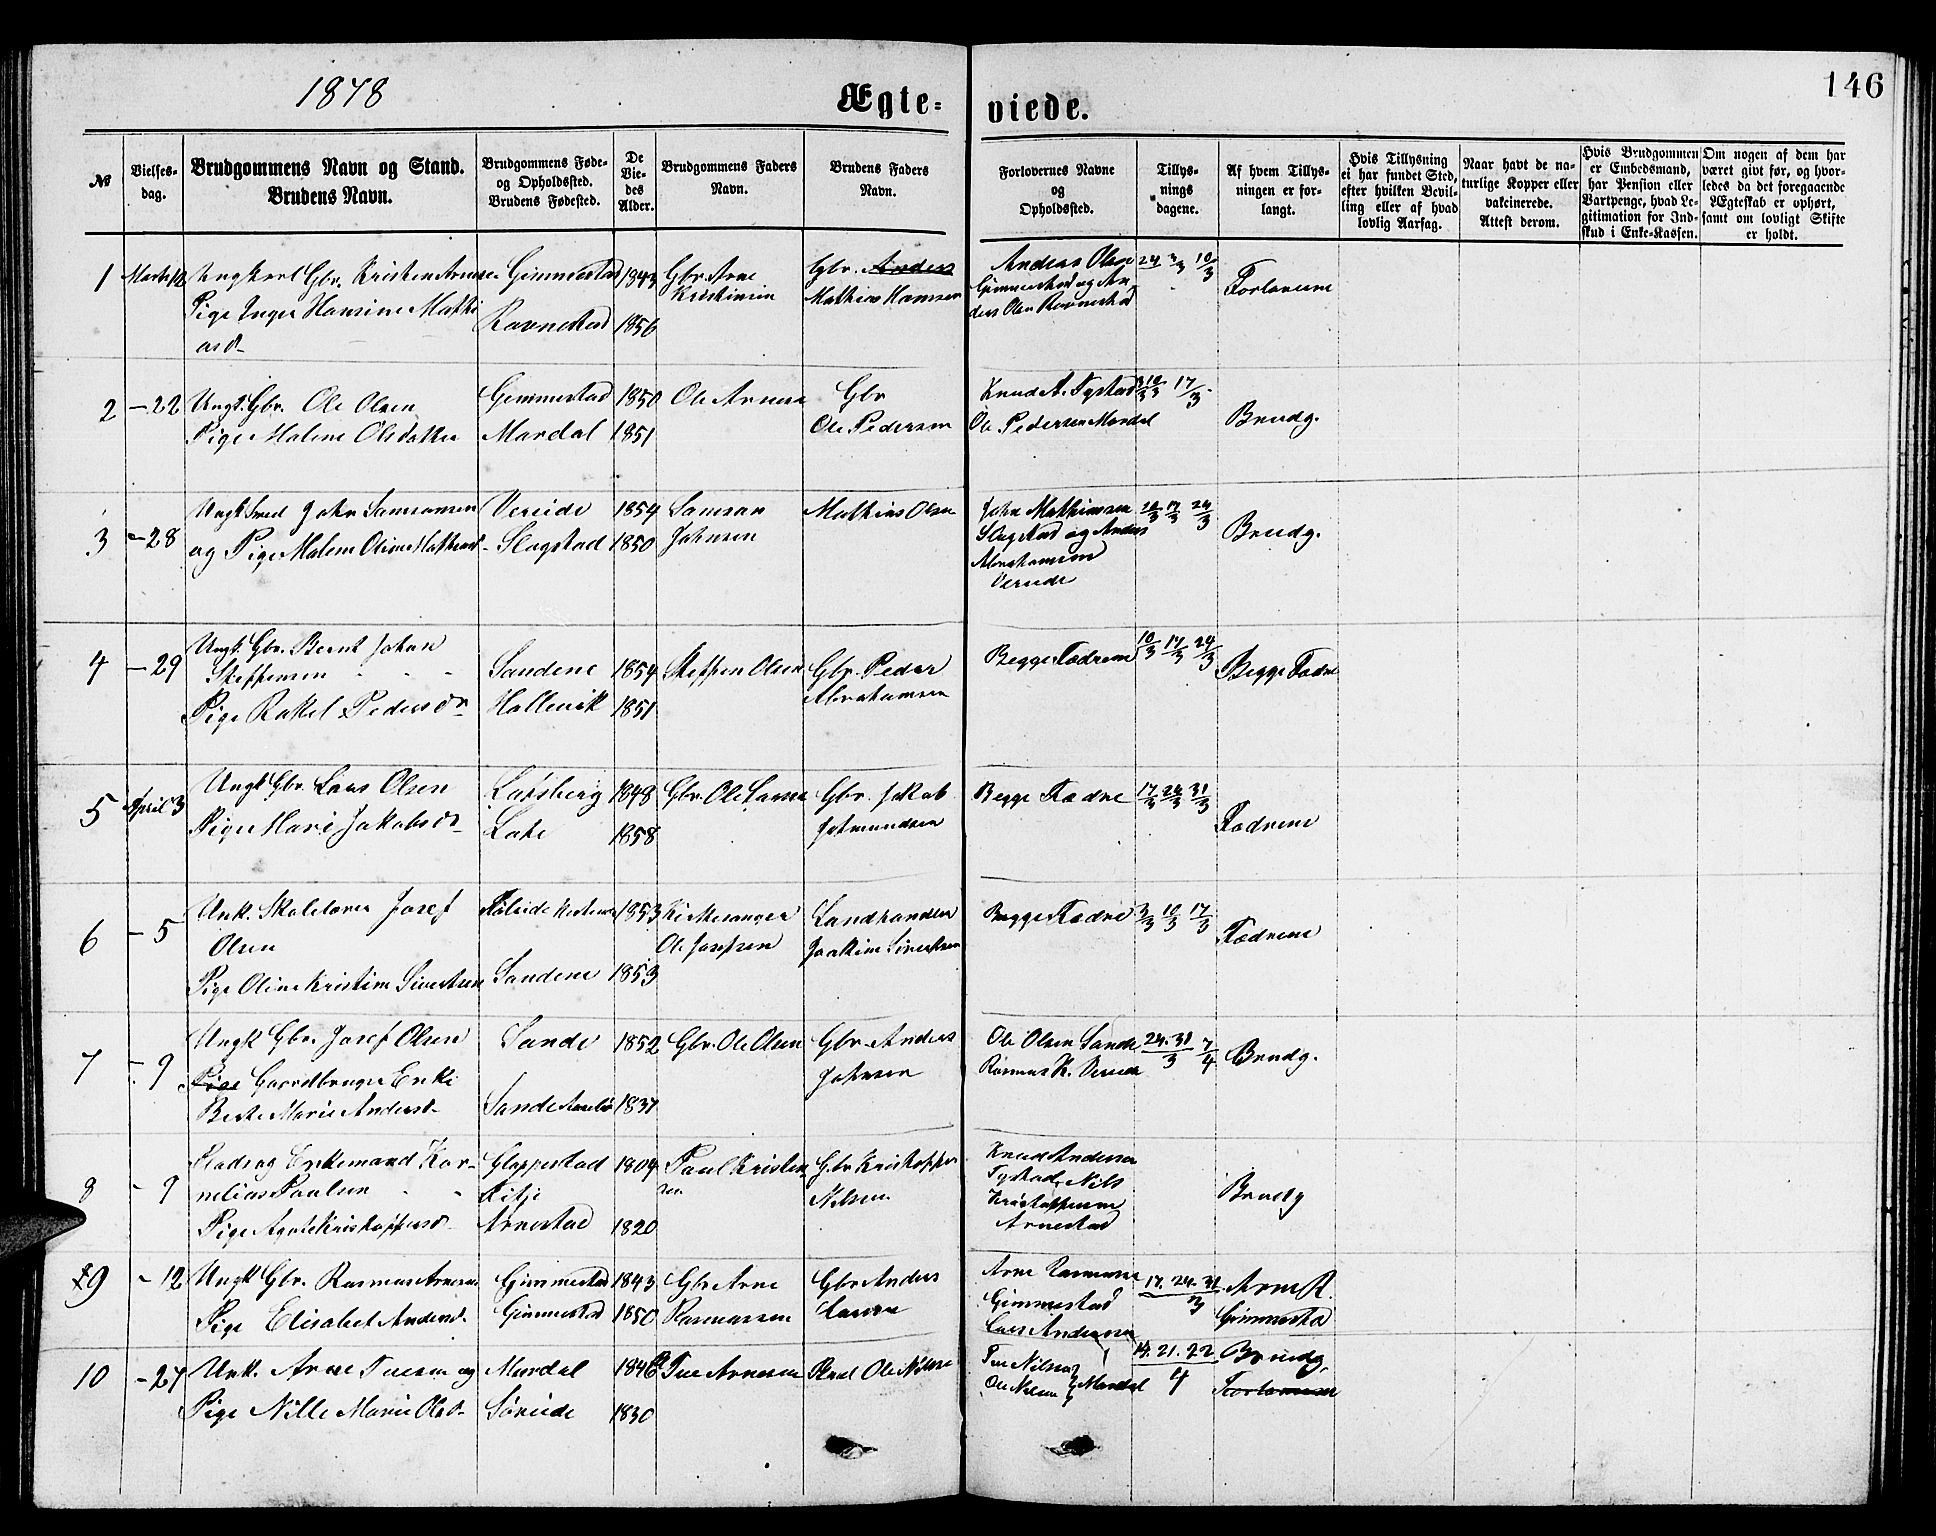 1878
Ægte-
viede.
146
№
Vielses-
dag.
Brudgommens Navn og Stand.
Brudens Navn.
Brudgommens Føde-
og Opholdssted.
Brudens Fødested.
De
Vie-
des
Alder.
Brudgommens Faders
Navn.
Brudens Faders
Navn.
Forlovernes Navne
og
Opholdssted.
Tillys-
nings
dagene.
Af hvem Tillys-
ningen er for-
langt.
Hvis Tillysning
ei har fundet Sted,
efter hvilken Bevil-
ling eller af hvad
lovlig Aarsag.
Naar havt de na-
turlige Kopper eller
vakcinerede.
Attest derom.
Hvis Brudgommen
er Embedsmand,
har Pension eller
Vartpenge, hvad Le-
gitimation for Ind-
skud i Enke-Kassen.
Om nogen af dem har
været givt før, og hvor-
ledes da det foregaaende
Ægteskab er ophørt,
samt om lovligt Skifte
er holdt.
1
Ungkarl Gbr. Kristen Arnesen
Pige Inger Hansine Mathi
asd
Gimmestad
Ravnestad
1843
1856
Gbr. Arne
Kristensen
Gbr. Anders
Mathias Hansen
Andreas Olsen
Gimmestad og An
ders Olsen Ravnestad
24 3/3 10/3
Forloverne
2
- 22
Ungk. Gbr. Ole Olsen
Pige Malene Olsdatter
Gimmestad
Mardal
1850
1851
Ole Arnesen
Gbr
Ole Pedersen
Knud A. Tystad
Ole Pedersen Mardal
3/3 10/3 17/3
Brudg.
3
- 28
Ungk Smed John Samsonsen
og Pige Malene Oline Mathiasd
Vereide
Slagstad
1854
1850
Samson
Johnsen
Mathias Olsen
John Mathiassen
Slagstad og Anders
Abrahamsen
Vereide
17/3 24/3
Brudg.
4
- 29
Ungk. Gbr. Bernt Johan
Steffensen
Pige Rakel Pedersd
Sandene
Hallevik
1854
1851
Steffen Olsen
Gbr. Peder
Abrahamsen
Begge Fædrene
10/3 17/3 24/3
Begge Fædre
5
April 3
Ungk Gbr. Lars Olsen
Pige Mari Jakobsd
Lote
1848
1858
Gbr. Ole Larsen
Gbr. Jakob
Begge Fædre
17/3 24/3 31/3
Fædrene
6
- 5
Unk. Skolelærer Josef
Olsen
Pige Oline Kristine Sivertsen
Sandene
1853
1853
Kirkesanger
Ole Josefsen
Landhandler
Joakim Sivertsen
Begge Fædre
3/3 10/3 17/3
Fædrene
7
- 9
Ungk Gbr. Josef Olsen
Pige Gaardbruger Enke
Berte Marie Andersd
Sande
Sande
1852
1837
Gbr. Ole Olsen
Gbr. Anders
Johnsen
Ole Olsen Sande
Rasmus K. Vereide
24. 31/3 7/4
Brudg.
8
- 9
Pladsog Enkemand Kor-
nelius Paulsen
Pige Agate Kristoffersd
Gloppestad
Eitje
Arnestad
1804
1820
Paul Kristen
sen
Gbr Kristoffer
Nilsen
Knud Andersen
Tystad, Nils
Kristoffersen
Arnestad
Brudg
9
- 12
Ungk Gbr. Rasmus Arnesen
Pige Elisabet Andersd.
Gimmestad
Gimmestad
1843
1850
Gbr Arne
Rasmussen
Gbr Anders
Larsen
Arne Rasmussen
Gimmestad
Lars Andersen
17. 24. 31/3
Arne R.
Gimmestad
10
- 27
Unk. Arne Tuesen og
Pige Nille Marie Olsd
Mardal
Søreide
1846
1830
Tue Arnesen
Ole Nilsen
Tue Nilsen
Ole Nilsen Mardal
14. 21. 22/4
Brudg.
Forloverne